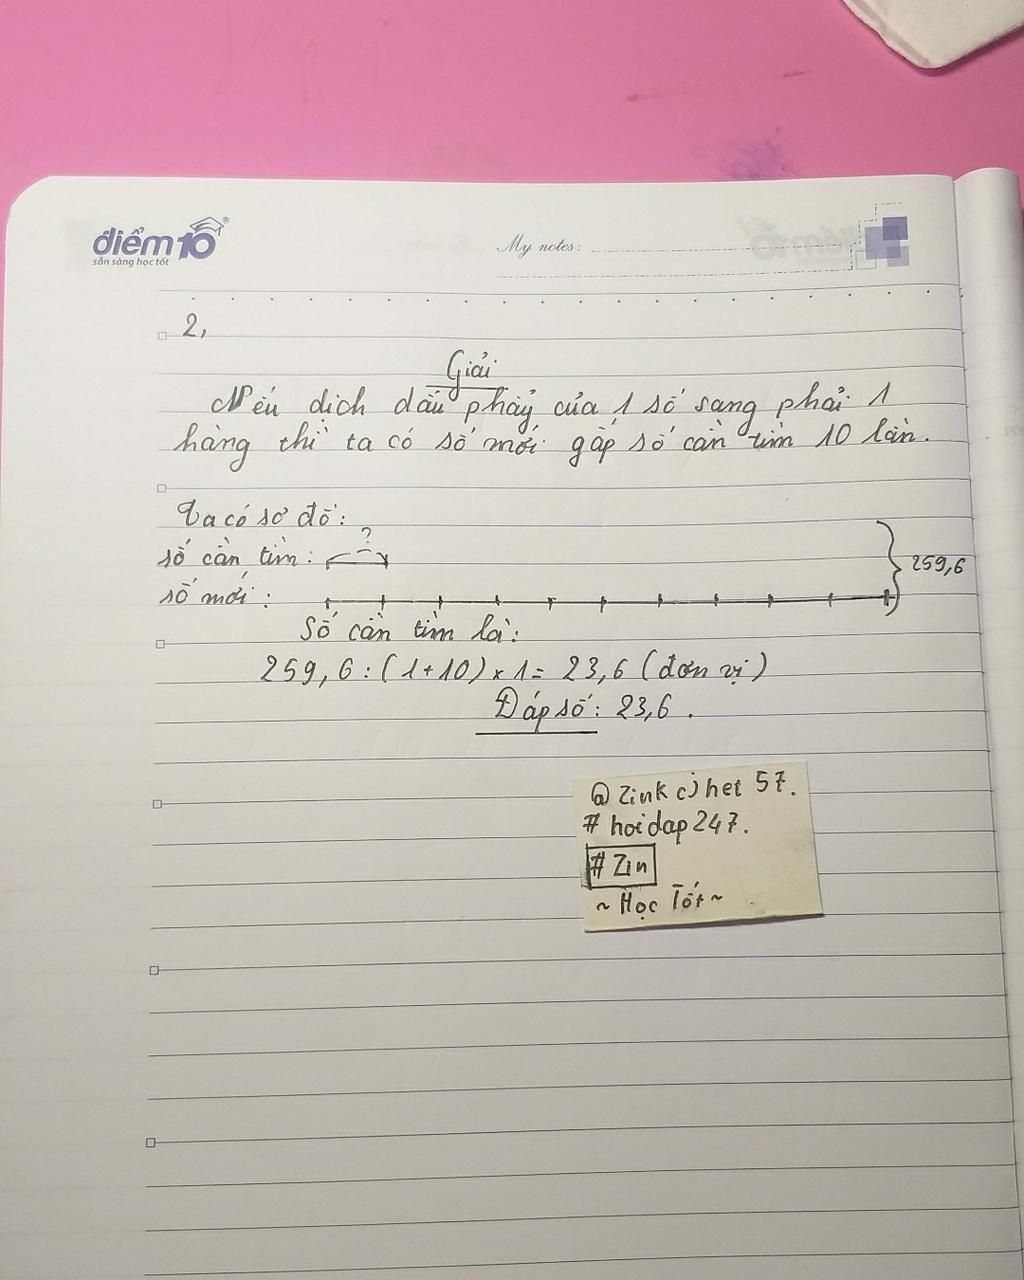 điểm 10®
sẵn sàng học tốt
My notes:
2,
Giải
Nếu dịch dấu phẩy của 1 số sang phải 1
hàng thì ta có số mới gấp số cần tìm 10 lần.
Ta có sơ đồ:
?
số cần tìm:
259,6
số mới:
Số cần tìm là:
259,6 : (1+10) × 1 = 23,6 (đơn vị)
Đáp số: 23,6.
@ Zink cjhet 57.
# hoidap247.
# Zin
~ Học Tốt ~